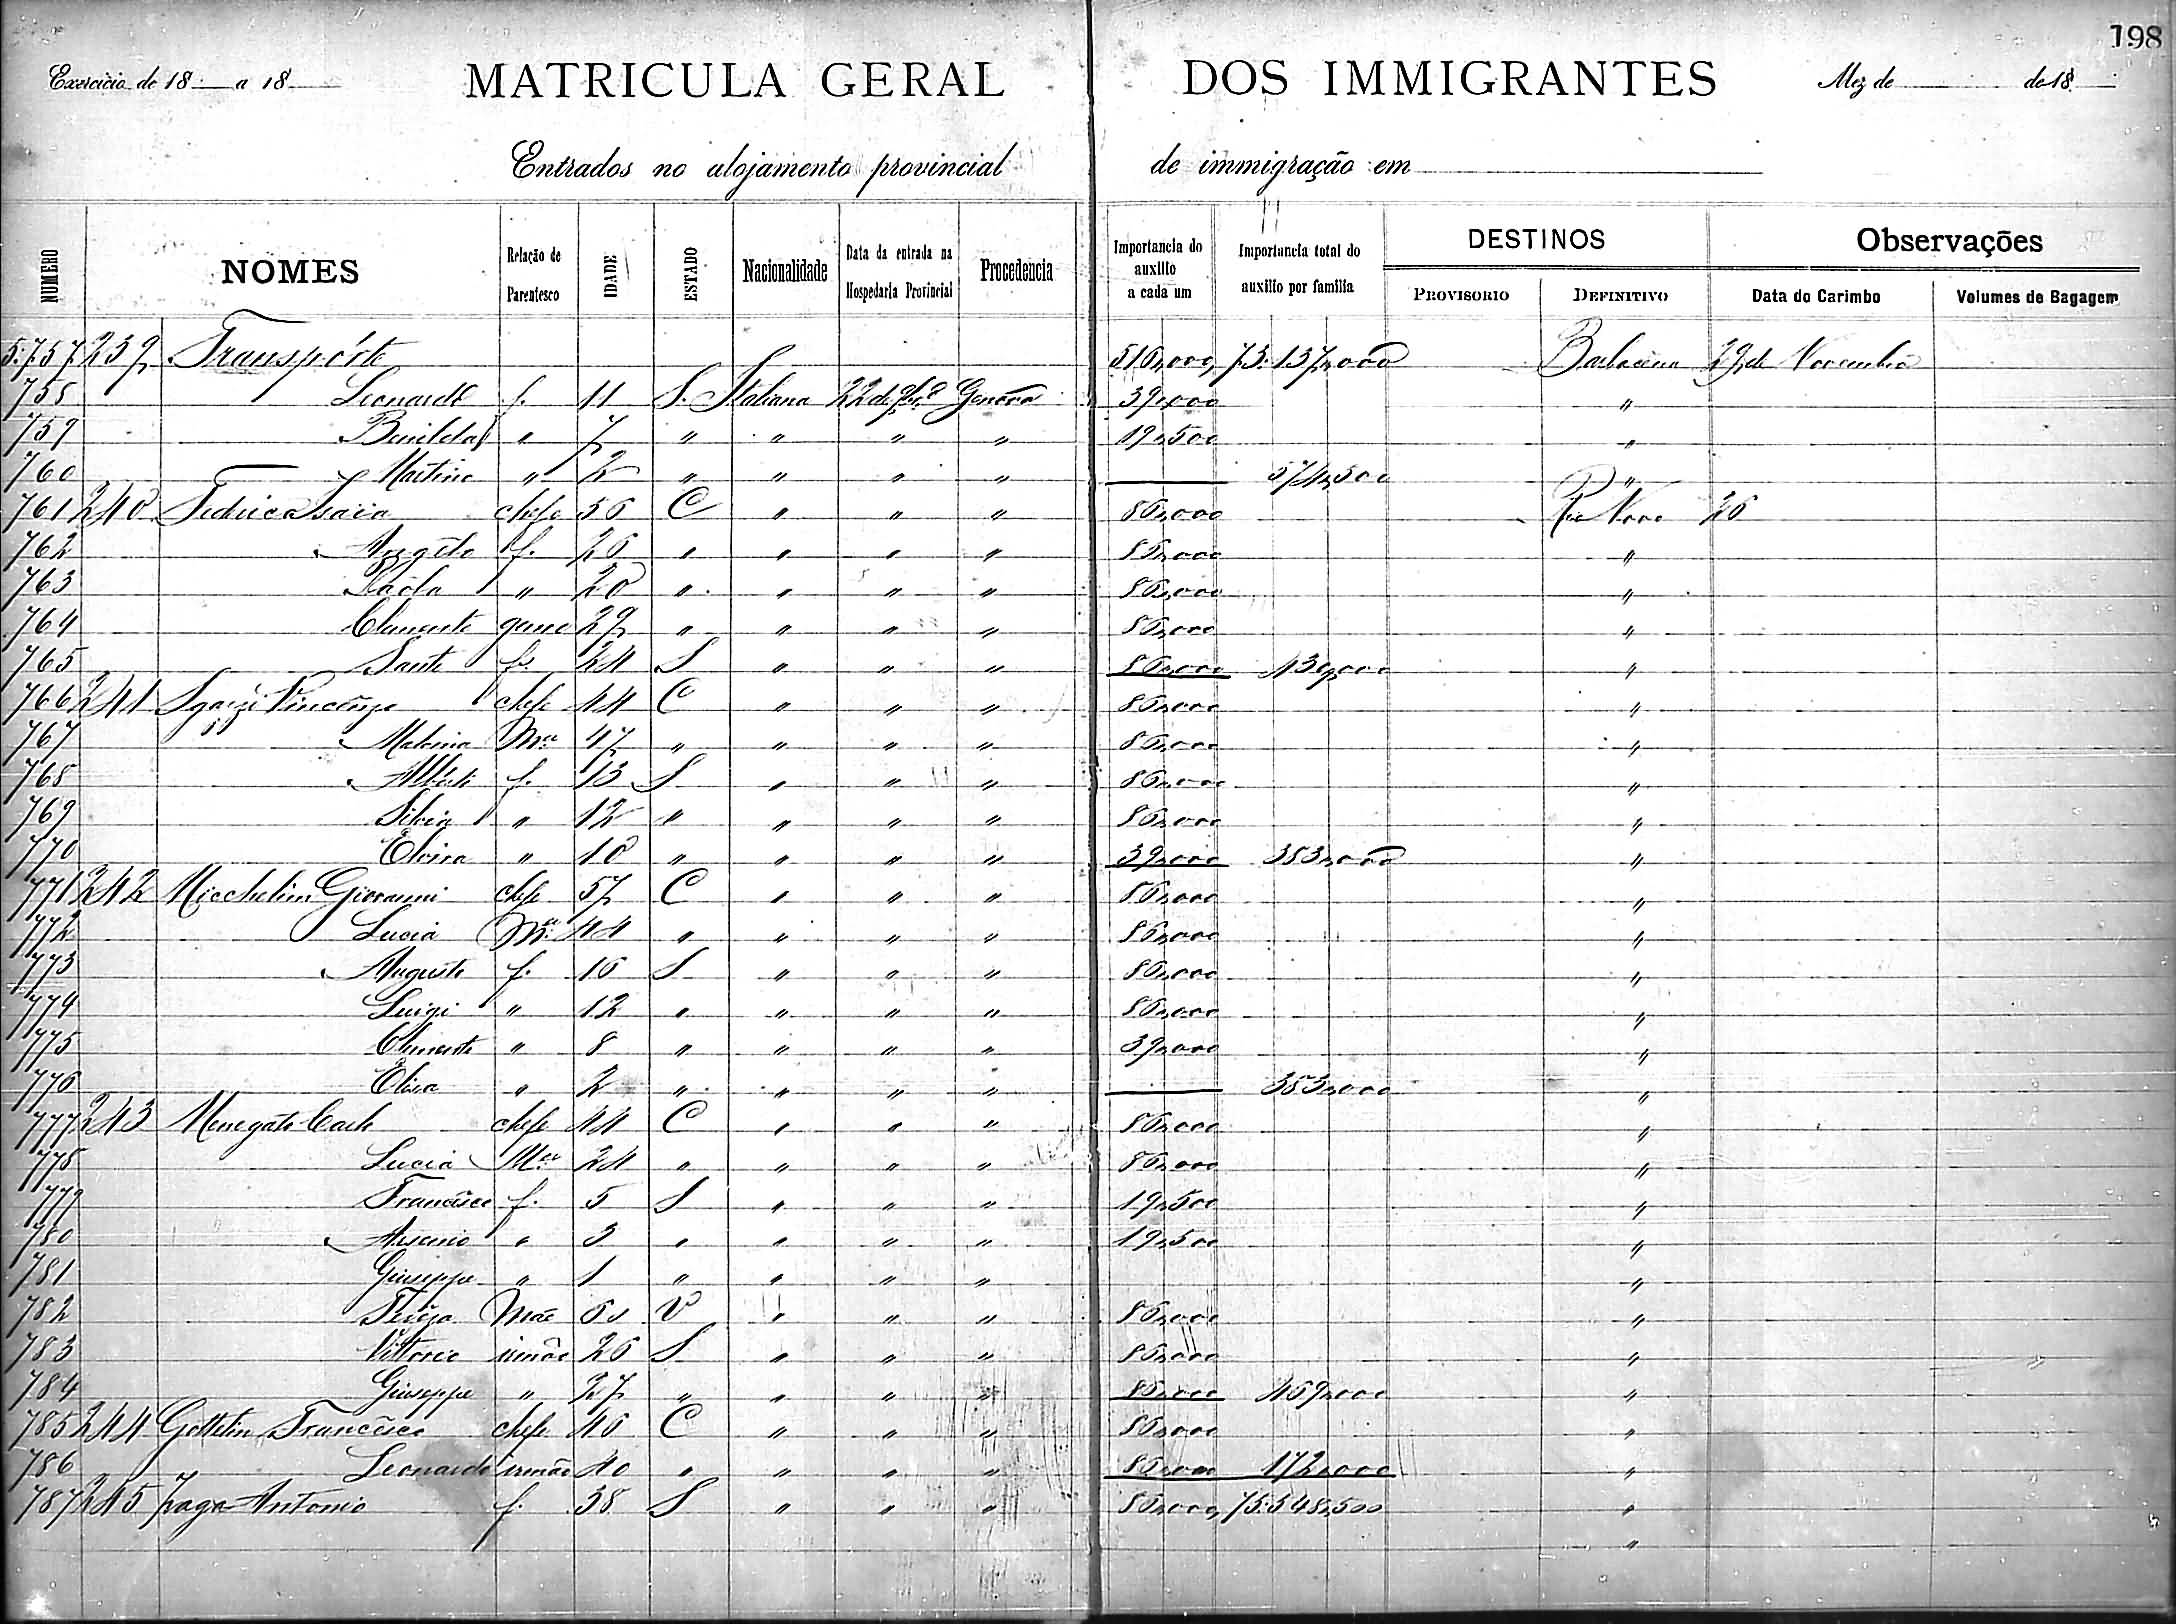 198
Exercicio de 18 a 18 MATRICULA GERAL DOS IMMIGRANTES Mez de de 18
Entrados no alojamento provincial de immigração em
NUMERO NOMES Relação de Parentesco IDADE ESTADO Nacionalidade Data da entrada na Hospedaria Provincial Procedencia Importancia do auxilio a cada um Importancia total do auxilio por familia DESTINOS PROVISORIO DEFINITIVO Observações Data do Carimbo Volumes de Bagagem
5.757 239 Transpórte 516,000 73.137,000 Barbacena 29 de Novembro
758 Leonardo f. 11 S. Italiana 22 de 9br.o Genova 39,000 "
759 " 7 " " " " 19,500 "
760 Martino " 2 " " " " 574,500 "
761 240 chefe 56 C " " " 86,000 Rio Novo 26
762 f. 26 " " " " 86,000 "
763 Paola " 20 " " " " 86,000 "
764 Clemente genro 29 " " " " 86,000 "
765 Sante f. 24 S " " " 86,000 430,000 "
766 241 Sgarzi Vincenzo chefe 44 C " " " 86,000 "
767 Mer 47 " " " " 86,000 "
768 f. 13 S " " " 86,000 "
769 Silvia " 12 " " " " 86,000 "
770 Elvira " 10 " " " " 39,000 383,000 "
771 242 Miechelim Giovanni chefe 57 C " " " 86,000 "
772 Lucia Mer 44 " " " " 86,000 "
773 Augusto f. 16 S " " " 86,000 "
774 Luigi " 12 " " " " 86,000 "
775 Clemente " 8 " " " " 39,000 "
776 Elisa " 2 " " " " 383,000 "
777 243 Menegato Carlo chefe 44 C " " " 86,000 "
778 Lucia Mer 24 " " " " 86,000 "
779 Francisco f. 5 S " " " 19,500 "
780 Arsenio " 3 " " " " 19,500 "
781 Giuseppe " 1 " " " " "
782 Mãe V " " " 86,000 "
783 Vittorio irmão 26 S " " " 86,000 "
784 Giuseppe " 27 " " " " 86,000 469,000 "
785 244 Gottelin Francisco chefe 46 C " " " 86,000 "
786 Leonardo irmão 40 " " " " 86,000 172,000 "
787 245 Antonio f. 38 S " " " 86,000 75.548,500 "
"